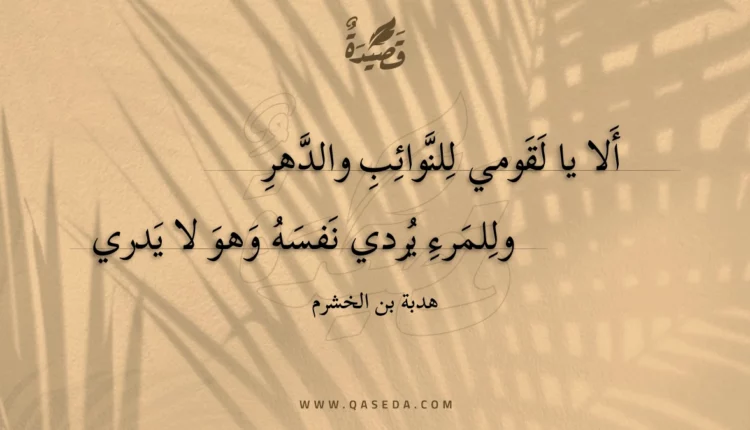 قَصِيْدَةٌ
أَلا يا لَقَومي لِلنَّوائِبِ والدَّهرِ
ولِلمَرءِ يُردي نَفسَهُ وَهوَ لا يَدري
هدبة بن الخشرم
WWW.QASEDA.COM